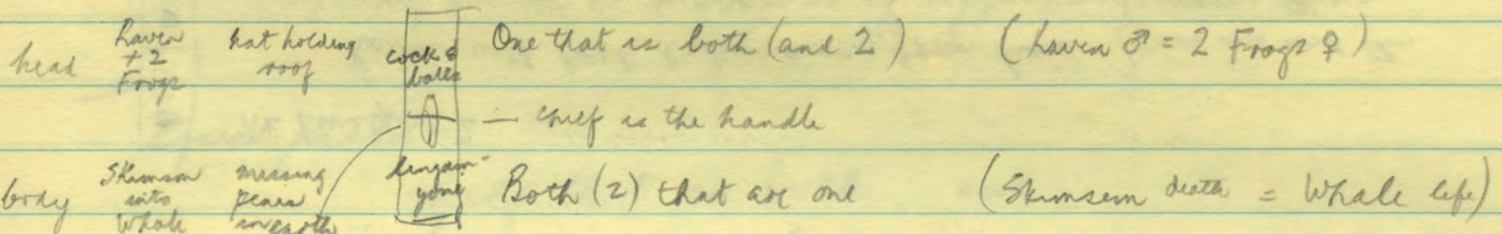 head
Raven
+2
Frogs
hat holding
roof
cock &
balls
One that is both (and 2)
(Raven ♂ = 2 Frogs ♀)
— chief is the handle
body
Skamson
into
Whale
missing
penis
lingam-
yoni
Both (2) that are one
(Skamsem death = Whale life)